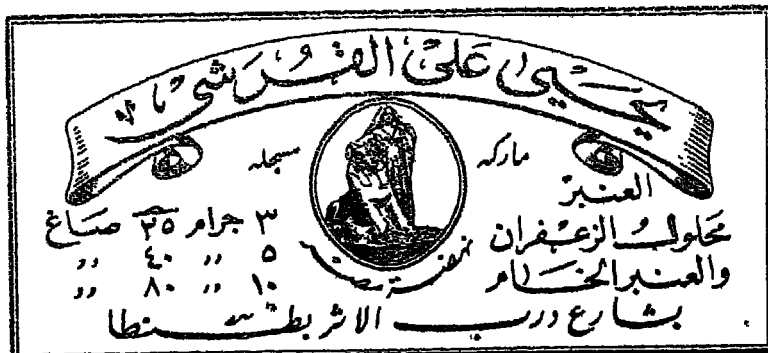 يحيى على القرشى
ماركه مسجله
نهضة مصر
العنبر
محلول الزعفران
والعنبر الخام
٣ جرام ٢٥ صاغ
٥ ״ ٤٠ ״
١٠ ״ ٨٠ ״
بشارع درب الاثر بطنطا